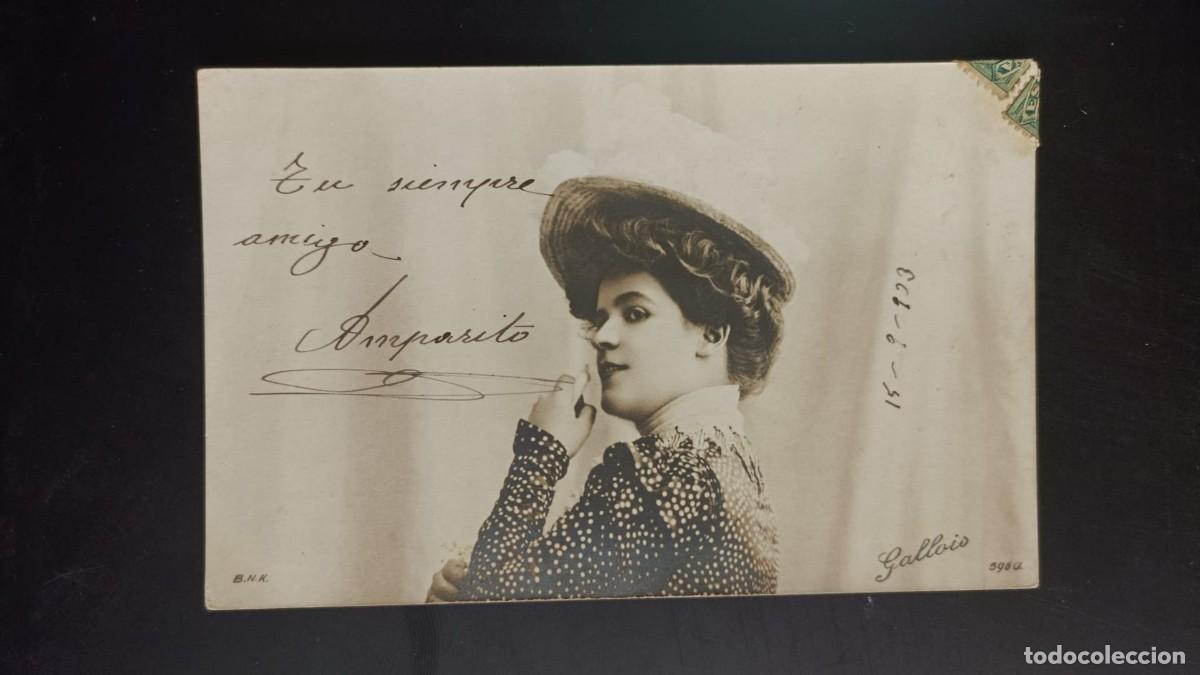 Tu siempre
amigo
Amparito
15-9-903
Gallois
B.N.K.
596a
todocoleccion